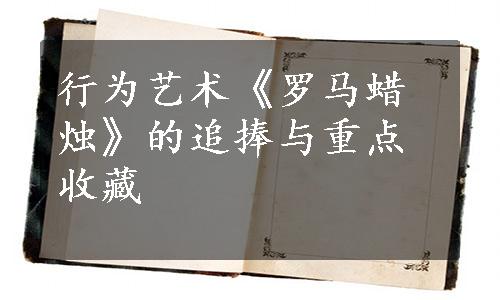 行为艺术《罗马蜡
烛》的追捧与重点
收藏